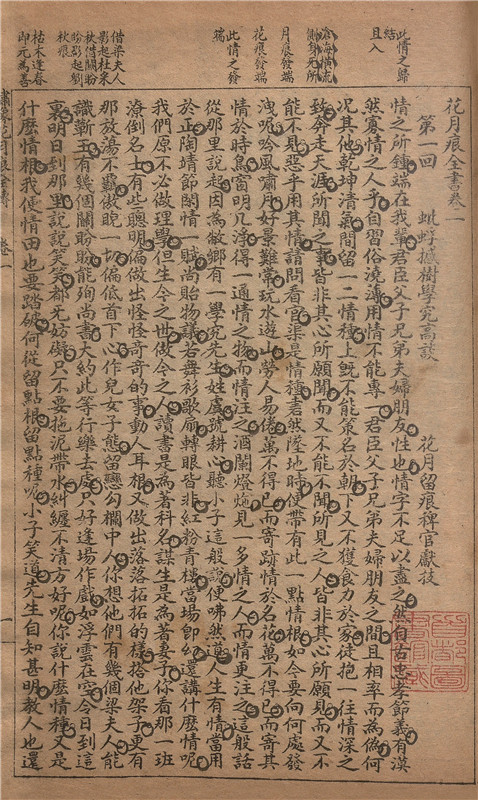 花月痕全書卷一
第一回 蚍蜉撼樹學究高談 花月留痕稗官獻技
情之所鍾端在我輩君臣父子兄弟夫婦朋友性也情字不足以盡之然自古忠孝節義有漠
然寡情之人乎自習俗澆薄用情不能專一君臣父子兄弟夫婦朋友之間且相率而為偽何
况其他乾坤清氣間留一二情種上既不能策名於朝下又不獲食力於家徒抱一往情深之
致奔走天涯所聞之事皆非其心所願聞而又不能不聞所見之人皆非其心所願見而又不
能不見惡乎用其情請問看官渠是情種砉然墜地時便帶有此一點情根如今要向何處發
洩呢吟風嘯月好景難常玩水遊山勞人易倦萬不得已而寄跡情於名花萬不得已而寄其
情於時鳥窗明几淨得一適情之物而情注之酒闌燈灺見一多情之人而情更注之這般話
從那里說起因為敝鄉有一學究先生姓虞號耕心聽小子這般說便咈然道人生有情當用
於正陶靖節閒情一賦尚貽物議若舞衫歌扇轉眼皆非紅粉青樓當場即幻還講什麼情呢
我們原不必做理學但生今之世做今之人讀書是為著科名謀生是為著妻子你看那一班
潦倒名士有些聰明偏做出怪怪奇奇的事動人耳根又做出落落拓拓的樣搭他架子更有
那放蕩不羈傲睨一切偏低首下心作兒女子態留戀勾欄中人你想他們有幾個梁夫人能
識蘄王有幾個關盼盼能殉尚書大約此等行樂去處只好逢場作戲如浮雲在空今日到這
裏明日到那里說說笑笑都无妨礙只不要拖泥帶水糾纏不清方好呢你說什麼情種又是
什麼情根我便情田也要踏破何從留點根留點種呢小子笑道先生自知甚明教人也還
此情之歸
結
且入
滄海橫流
側身无所
月痕發端
花痕發端
此情之發
端
借梁夫人
影起杜采
秋借關盼
盼影起劉
秋痕
枯木逢春
即元為善
卷一
一